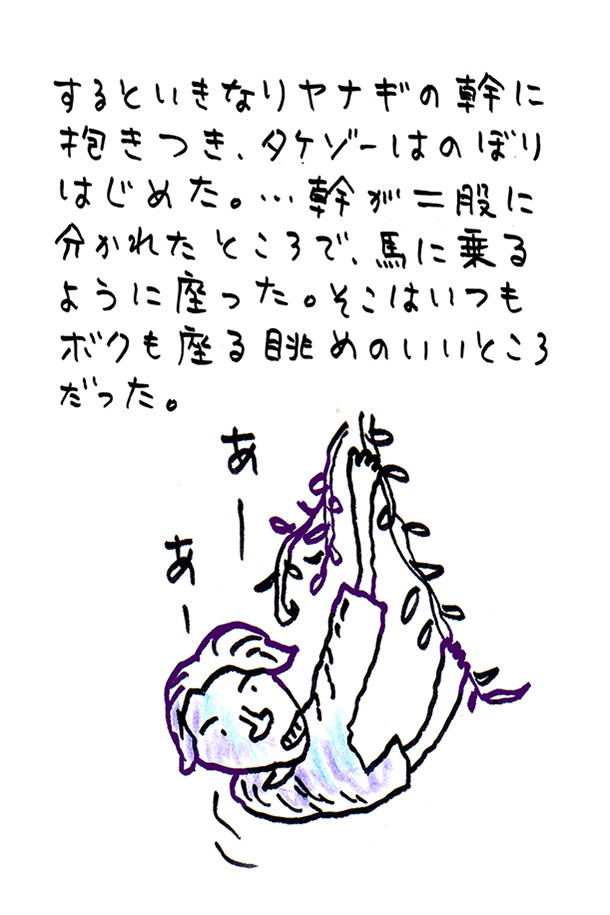 するといきなりヤナギの幹に
抱きつき、タケゾーはのぼり
はじめた。…幹が二股に
分かれたところで、馬に乗る
ように座った。そこはいつも
ボクも座る眺めのいいところ
だった。
あー
あー